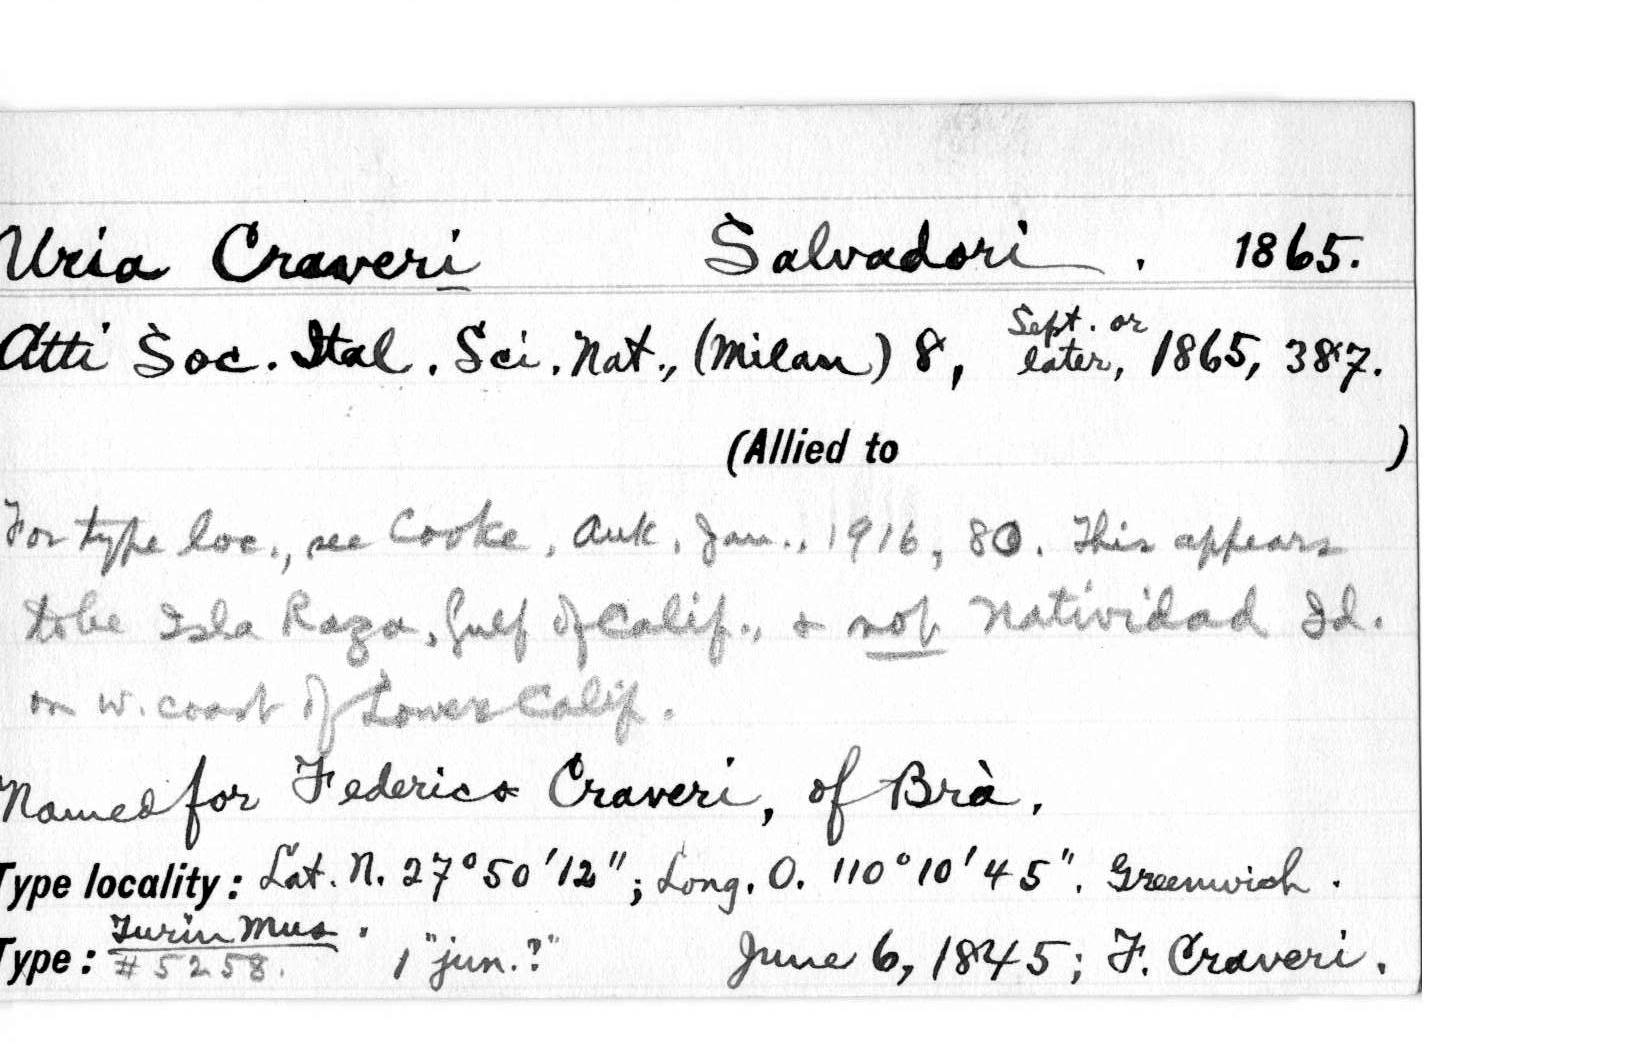 Uria Craveri Salvadori. 1865.
Atti Soc. Ital. Sci. Nat., (Milan) 8, Sept. or later, 1865, 387.
(Allied to )
For type loc., see Cooke, Auk, Jan., 1916, 80. This appears
to be Isla Raza, Gulf of Calif., & not Natividad Id.
on w. coast of Lower Calif.
Named for Federico Craveri, of Brà.
Type locality: Lat. N. 27°50'12"; Long. O. 110°10'45". Greenwich.
Type: Turin Mus. #5258. 1 "jun.?" June 6, 1845; F. Craveri.